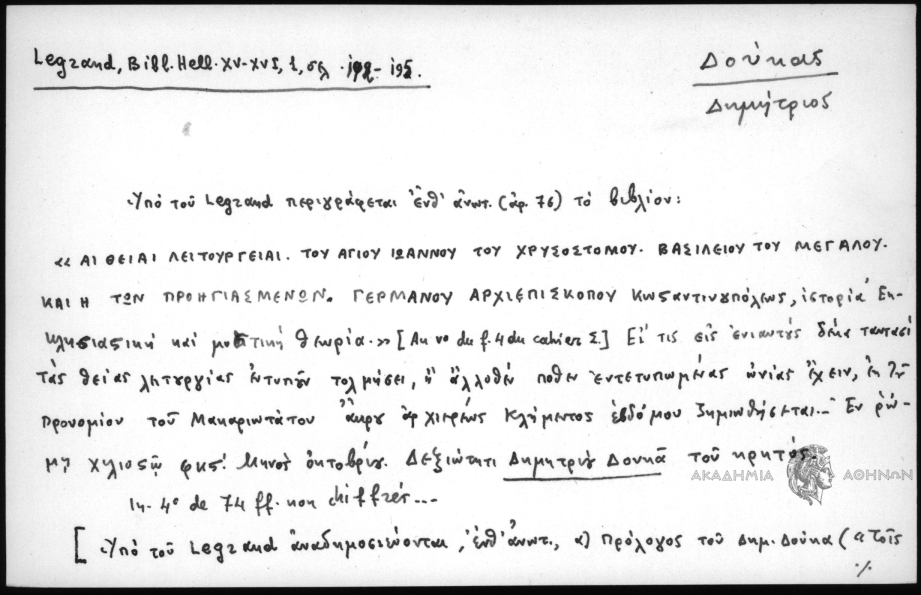 Legrand, Bibl. Hell. XV-XVI, 1, σελ. 192-195.
Δούκας
Δημήτριος
Ὑπὸ τοῦ Legrand περιγράφεται ἔνθ' ἀνωτ. (ἀρ. 76) τὸ βιβλίον:
« ΑΙ ΘΕΙΑΙ ΛΕΙΤΟΥΡΓΕΙΑΙ. ΤΟΥ ΑΓΙΟΥ ΙΩΑΝΝΟΥ ΤΟΥ ΧΡΥΣΟΣΤΟΜΟΥ. ΒΑΣΙΛΕΙΟΥ ΤΟΥ ΜΕΓΑΛΟΥ.
ΚΑΙ Η ΤΩΝ ΠΡΟΗΓΙΑΣΜΕΝΩΝ. ΓΕΡΜΑΝΟΥ ΑΡΧΙΕΠΙΣΚΟΠΟΥ Κωσαντινουπόλεως, ἱστορία Εκ-
κλησιαστικὴ καὶ μυστικὴ θεωρία.» [Au vo du f. 4 du cahier Σ.] Εἴ τις εἰς ἐνιαυτοὺς δέκα ταυτασὶ
τὰς θείας λητυργίας ἐντυπῶν τολμήσει, ἢ ἄλλοθέν ποθεν ἐντετυπωμένας ὠνίας ἔχειν,
Προνομίου τοῦ Μακαριωτάτου ἄκρου ἀρχιερέως Κλήμεντος ἑβδόμου Ζημιωθήσεται... Ἐν ῥώ-
μῃ χιλιοστῷ φκς'. Μηνὸς ὀκτοβρίου. Δεξιώτητι Δημητρίου Δουκᾶ τοῦ κρητός.
ΑΚΑΔΗΜΙΑ ΑΘΗΝΩΝ
In-4° de 74 ff. non chiffrés...
[Ὑπὸ τοῦ Legrand ἀναδημοσιεύονται, ἔνθ' ἀνωτ., α) Πρόλογος τοῦ Δημ. Δούκα («Τοῖς
./.